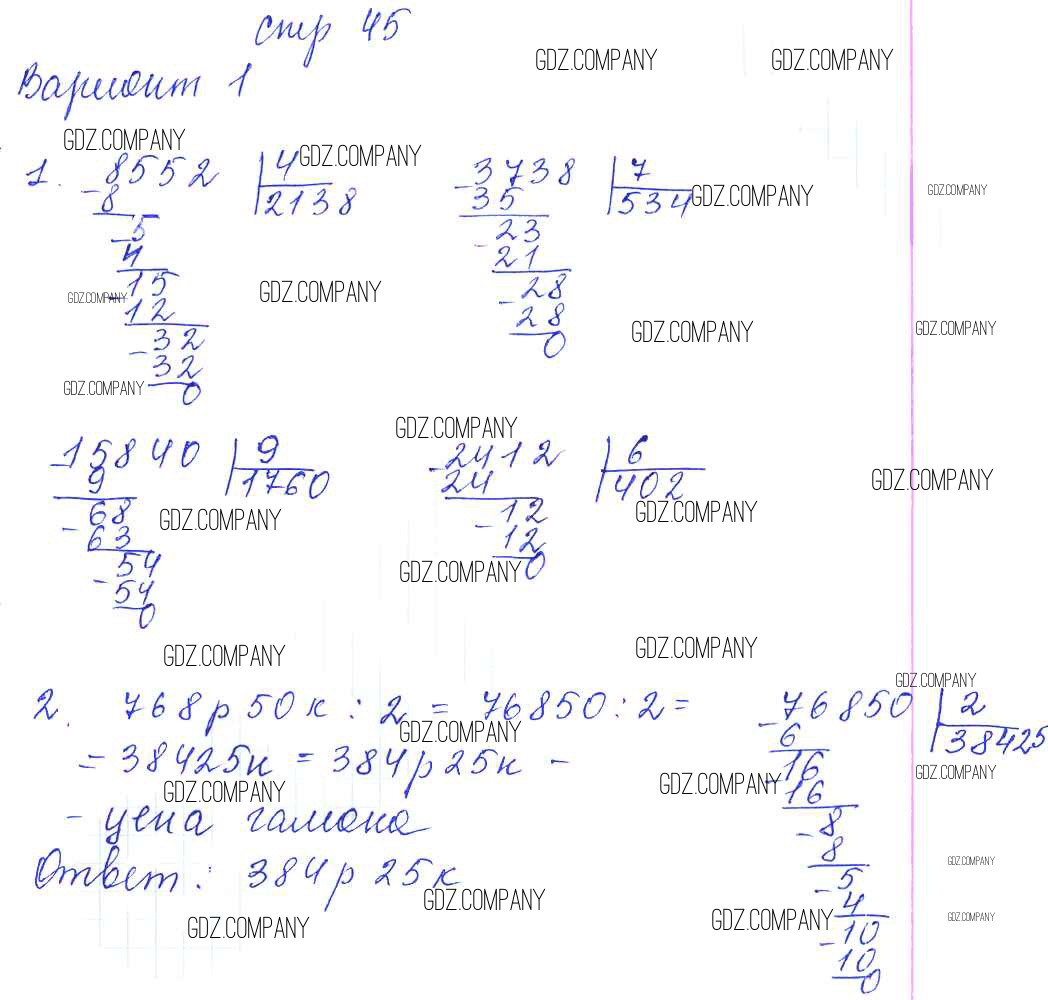 стр 45
GDZ.COMPANY GDZ.COMPANY
Вариант 1
GDZ.COMPANY GDZ.COMPANY
1. 8552 | 4 3738 | 7
GDZ.COMPANY GDZ.COMPANY
- 8 2138 - 35 534
5 23
- 4 - 21
GDZ.COMPANY GDZ.COMPANY
- 15 28
12 - 28
GDZ.COMPANY GDZ.COMPANY
32 0
- 32
GDZ.COMPANY
0
GDZ.COMPANY
15840 | 9 2412 | 6
- 9 1760 - 24 402
GDZ.COMPANY
68 12
GDZ.COMPANY GDZ.COMPANY
- 63 - 12
54 0
GDZ.COMPANY
- 54
0
GDZ.COMPANY GDZ.COMPANY
GDZ.COMPANY
2. 768р 50к : 2 = 76850 : 2 = 76850 | 2
GDZ.COMPANY
- 6 38425
= 38425к = 384р 25к -
- 16
GDZ.COMPANY GDZ.COMPANY GDZ.COMPANY
16
- цена гамака
- 8
8
GDZ.COMPANY
Ответ: 384р 25к
- 5
4
GDZ.COMPANY
GDZ.COMPANY GDZ.COMPANY GDZ.COMPANY
- 10
10
0